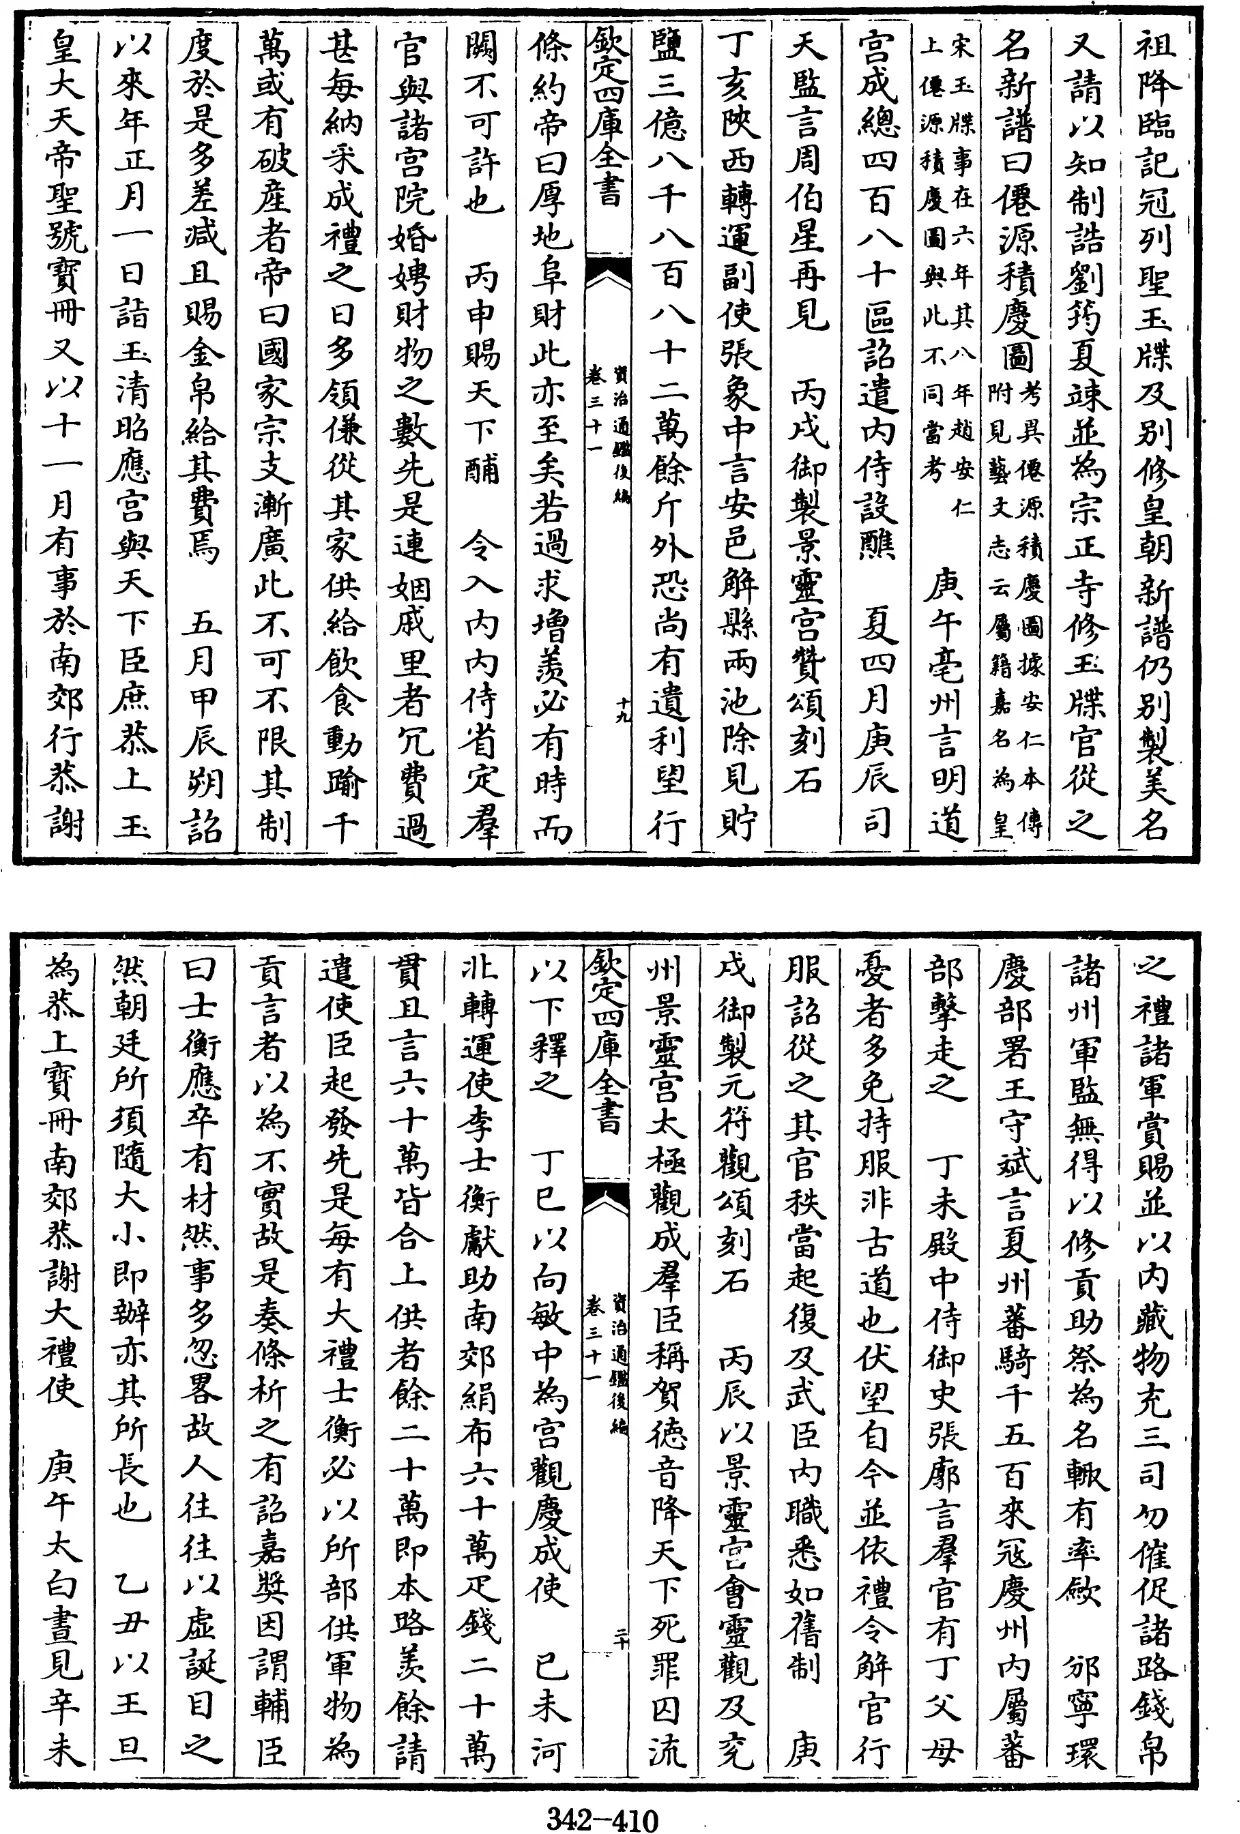 祖降臨記冠列聖玉牒及別修皇朝新譜仍別製美名
又請以知制誥劉筠夏竦並為宗正寺修玉牒官從之
名新譜曰僊源積慶圖考異僊源積慶圖據安仁本傳
附見藝文志云屬籍嘉名為皇
宋玉牒事在六年其八年趙安仁
上僊源積慶圖與此不同當考
庚午亳州言明道
宮成總四百八十區詔遣內侍設醮　夏四月庚辰司
天監言周伯星再見　丙戌御製景靈宮贊頌刻石
丁亥陝西轉運副使張象中言安邑解縣兩池除見貯
鹽三億八千八百八十二萬餘斤外恐尚有遺利望行
欽定四庫全書
資治通鑑後編
卷三十一
十九
條約帝曰厚地阜財此亦至矣若過求增羨必有時而
闕不可許也　丙申賜天下酺　令入內內侍省定羣
官與諸宮院婚娉財物之數先是連姻戚里者冗費過
甚每納采成禮之日多領傔從其家供給飲食動踰千
萬或有破產者帝曰國家宗支漸廣此不可不限其制
度於是多差减且賜金帛給其費焉　五月甲辰朔詔
以來年正月一日詣玉清昭應宮與天下臣庶恭上玉
皇大天帝聖號寶冊又以十一月有事於南郊行恭謝
之禮諸軍賞賜並以內藏物充三司勿催促諸路錢帛
諸州軍監無得以修貢助祭為名輙有率歛　邠寧環
慶部署王守斌言夏州蕃騎千五百來冦慶州內屬蕃
部擊走之　丁未殿中侍御史張廓言羣官有丁父母
憂者多免持服非古道也伏望自今並依禮令解官行
服詔從之其官秩當起復及武臣內職悉如舊制　庚
戌御製元符觀頌刻石　丙辰以景靈宮會靈觀及兗
州景靈宮太極觀成羣臣稱賀德音降天下死罪囚流
欽定四庫全書
資治通鑑後編
卷三十一
二十
以下釋之　丁巳以向敏中為宮觀慶成使　己未河
北轉運使李士衡獻助南郊絹布六十萬疋錢二十萬
貫且言六十萬皆合上供者餘二十萬即本路羨餘請
遣使臣起發先是每有大禮士衡必以所部供軍物為
貢言者以為不實故是奏條析之有詔嘉奬因謂輔臣
曰士衡應卒有材然事多忽畧故人往往以虛誕目之
然朝廷所須隨大小即辦亦其所長也　乙丑以王旦
為恭上寶冊南郊恭謝大禮使　庚午太白晝見辛未
342-410